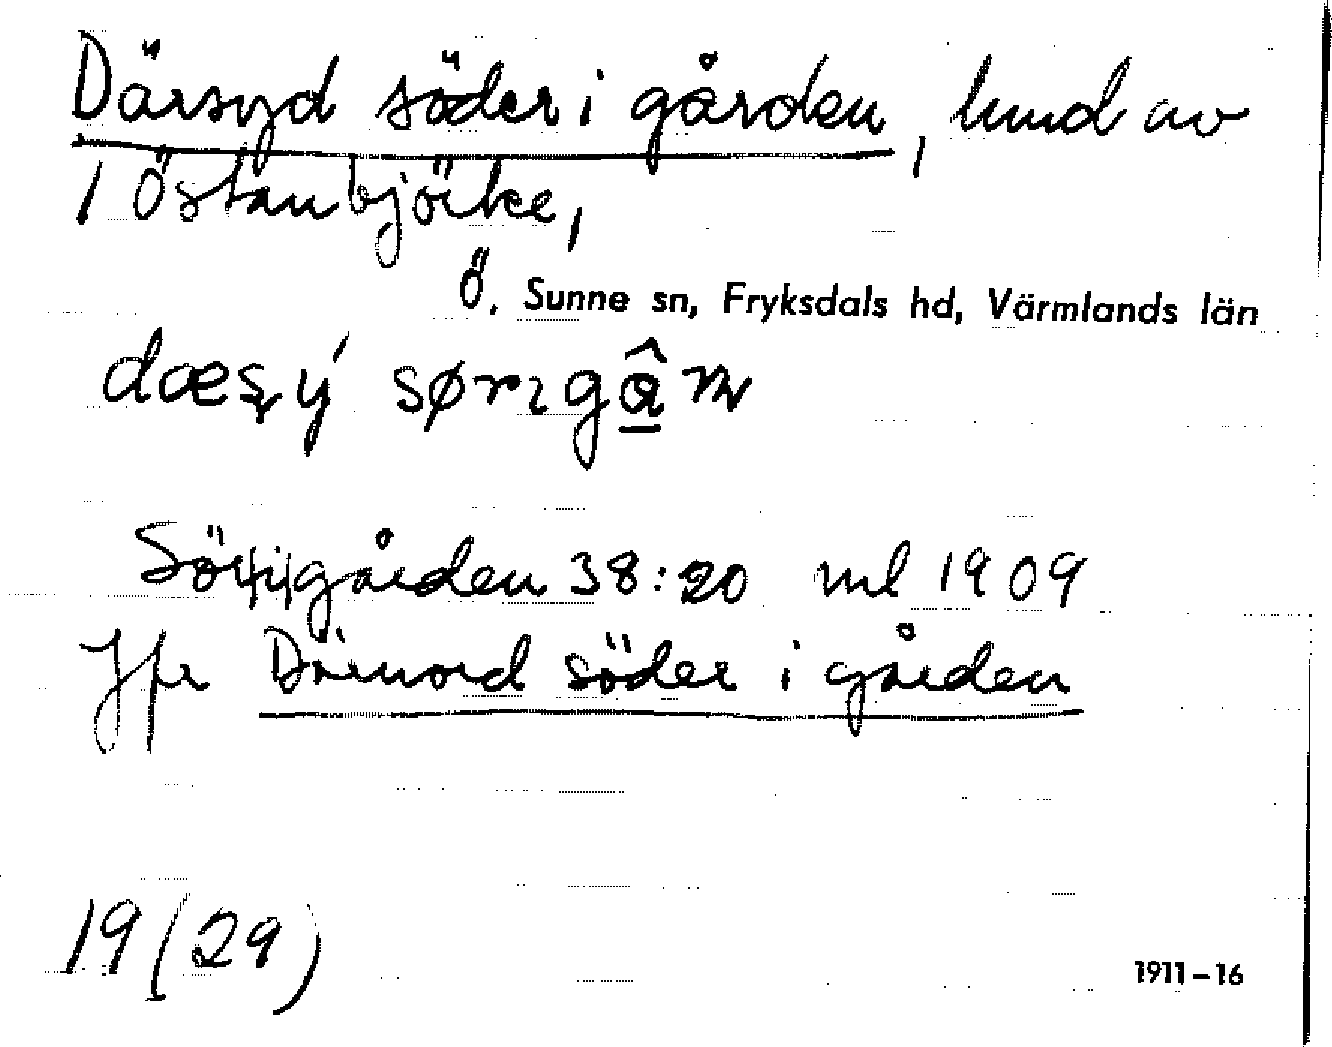 Därsyd söder i gården, lund av
/ Östanbjörke,
Ö. Sunne sn, Fryksdals hd, Värmlands län
38:20 ml 1909
Jfr Därnord söder i gården
19 (29)
1911–16